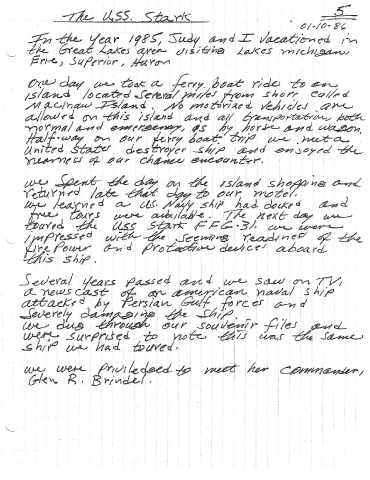 The USS. Stark
5
01-10-86
In the year 1985, Judy and I vacationed in
the Great Lakes area visiting Lakes michigan
Erie, Superior, Huron
One day we took a ferry boat ride to an
island located several miles from shore, called
Macinaw Island. No motorized vehicles are
allowed on this island and all transportation, both
normal and emergency, as by horse and wagon.
Half-way on our ferry boat trip we met a
United States destroyer ship and enjoyed the
nearness of our chance encounter.
we spent the day on the island shopping and
returned late that day to our motel.
we learned a US. Navy ship had docked and
free tours were available. The next day we
toured the USS Stark FFG-31. we were
impressed with the seeming readiness of the
fire power and protective devices aboard
this ship.
Several years passed and we saw on TV,
a newscast of an american naval ship
attacked by Persian Gulf forces and
severely damaging the ship.
we dug through our souvenir files and
were surprised to note this was the same
ship we had toured.
we were priviledged to meet her commander,
Glen R. Brindel.